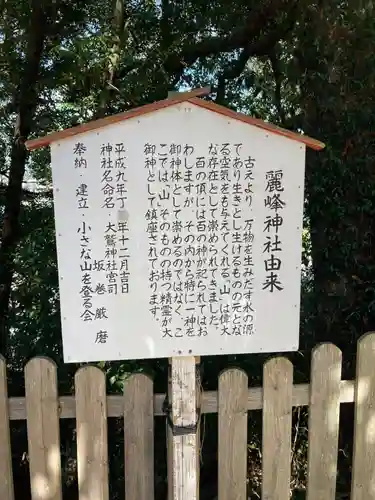 麗峰神社由来
古えより、万物を生みだす水の源
であり生きとし生けるものの元とな
る空気をも与えてくれる「山」は偉大
な存在として崇められてきました。
百の頂には百の神が祀られてはお
りますが、その内から特に一神を
御神体として崇めるのではなく、こ
こでは、山、そのものの持つ精霊が大
御神として鎮座されております。
平成九年丁 年十二月吉日
神社名命名・大鷲神社宮司
坂巻厳磨
奉納・建立・小さな山を登る会